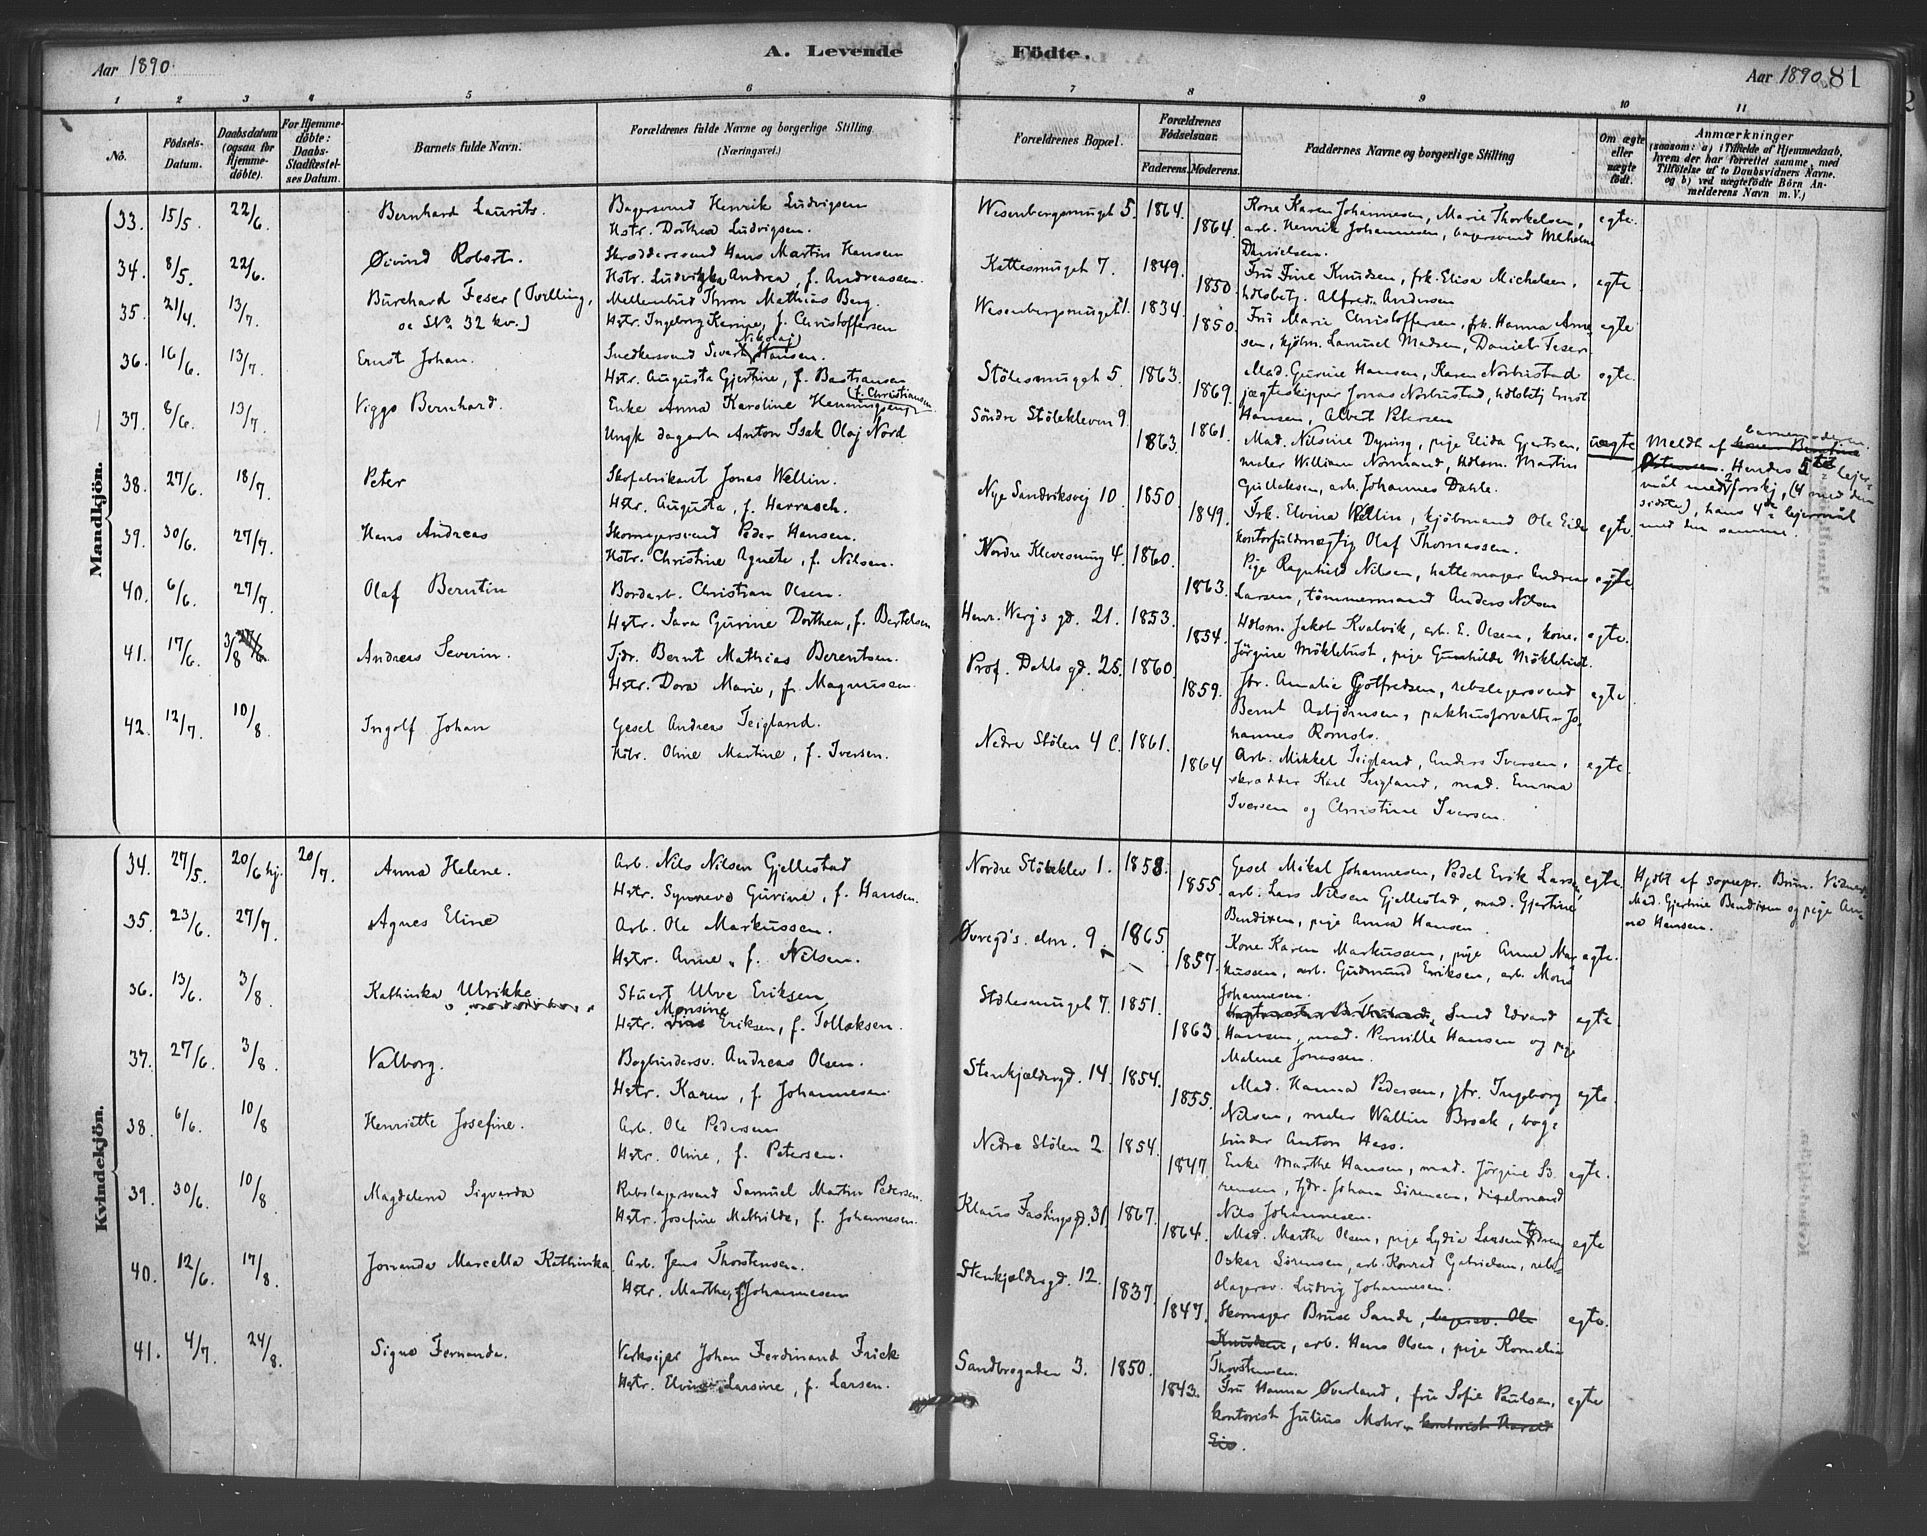 Aar 1890.
A. Levende Födte.
Aar 1890. 81
1 2 3 4 5 6 7 8 9 10 11
No.
Födsels-Datum.
Daabsdatum (ogsaa for Hjemmedöbte).
For Hjemmedöbte: Daabs-Stadfæstelses Datum.
Barnets fulde Navn.
Forældrenes fulde Navne og borgerlige Stilling (Næringsvei.)
Forældrenes Bopæl.
Forældrenes Födselsaar.
Faderens. Moderens.
Faddernes Navne og borgerlige Stilling
Om ægte eller uægte födt.
Anmærkninger
(saasom: a) i Tilfælde af Hjemmedaab, hvem der har forrettet samme, med Tilföielse af to Daabsvidners Navne, og b) ved uægtefödte Börn Anmelderens Navn m. V.)
Mandkjön.
33. 15/5. 22/6. Bernhard Laurits. Bagersvend Henrik Ludvigsen
Hstr. Dorthea Ludvigsen.
Wesenbergsmuget 5. 1864. 1864.
Kone Karen Johannesen, Marie Thorkelsen,
arb. Henrik Johannesen, bagersvend Wilhelm
Danielsen.
egte.
34. 8/5. 22/6. Øivind Robert. Skræddersvend Hans Martin Hansen
Hstr. Ludvikka Andrea, f. Andreassen.
Kattesmuget 7. 1849. 1850.
Fru Fine Knudsen, frk. Elisa Michelsen,
hdlsbetj. Alfred Andersen
egte.
35. 21/4. 13/7. Burchard Feser (Tvilling,
se No 32 kv.)
Mellembud Thron Mathias Berg.
Hstr. Ingeborg Kernine, f. Christoffersen
Wesenbergsmuget 1. 1834. 1850.
Fru Marie Christoffersen, frk. Hanna Arne-
sen, kjøbm. Samuel Madsen, Daniel Feser.
egte
36. 16/6. 13/7. Ernst Johan. Snedkersvend Sivert Nikolaj Hansen.
Hstr. Augusta Gjertine, f. Bastiansen
Stølesmuget 5. 1863. 1869.
Mad. Gurine Hansen, Karen Norbustad
jægteskipper Jonas Norbustad, hdlsbetj Ernst
Hansen, Albert Petersen
egte.
37. 8/6. 13/7. Viggo Bernhard. Enke Anna Karoline Henningsen, f. Christiansen
Ungk. dagarb Anton Isak Olaj Nord
Söndre Stölekleven 9 1863. 1861.
Mad. Nilsine Dyning, pige Elida Gjertsen,
maler William Normand, hdlsm. Martin
Gullaksen, arb. Johannes Dahle.
uegte
Meldt af barnemoderen. Hendes 5te lejer-
mål med 2 forskj, (4 med den
sidste), hans 4de lejermål
med den samme.
38. 27/6. 18/7. Peter Skofabrikant Jonas Wellin.
Hstr. Augusta, f. Harrasch.
Nye Sandviksvej 10. 1850. 1849.
Frk. Elvina Wellin, kjöbmand Ole Eide
kontorfuldmægtig Olaf Thomassen.
egte.
39. 30/6. 27/7. Hans Andreas Skomagersvend Peder Hansen.
Hstr. Christine Agnete, f. Nilsen.
Nordre Klevesmug 4. 1860. 1863.
Pige Ragnhild Nilsen, hattemager Andreas
Larsen, tömmermand Anders Nilsen
egte.
40. 6/6. 27/7. Olaf Berntin Bordarb. Christian Olsen.
Hstr. Sara Gurine Dorthea, f. Bertelsen
Henr. Werg's gd. 21. 1853. 1854.
Hdlsm. Jakob Kvalvik, arb. E. Olsen, kone.
Jörgine Möklebust, pige Gunhilde Möklebust
egte.
41. 17/6. 3/8 Andreas Severin. Tjdr. Bernt Mathias Berentsen.
Hstr. Dora Marie, f. Magnusen.
Prof. Dahls gd. 25. 1860. 1859.
Jfr. Amalie Gotfredsen, rebslagersvend
Bernt Asbjörnsen, pakhusforvalter Jo-
hannes Romslo.
egte
42. 12/7. 10/8. Ingolf Johan Gesel Andreas Teigland.
Hstr. Oline Martine, f. Iversen.
Nedre Stölen 4 C. 1861. 1864
Arb. Mikkel Teigland, Anders Iversen,
skrædder Karl Teigland, mad. Emma
Iversen og Christine Iversen.
egte.
Kvindekjön.
34. 27/5. 20/6 hj. 20/7. Anna Helene. Arb. Nils Nilsen Gjellestad
Hstr. Synneva Gurine, f. Hansen.
Nordre Stöleklev 1. 1858. 1855.
Gesel Mikal Johannesen, Pedel Erik Larsen,
arb. Lars Nilsen Gjellestad, mad. Gjertine
Bendixen, pige Anna Hansen.
egte.
Hjdbt af sognepr. Brun. Vidner:
Mad. Gjertine Bendixen og pige An-
na Hansen.
35. 23/6. 27/7. Agnes Eline Arb. Ole Markussen.
Hstr. Anne, f. Nilsen.
Øvregd's. alm. 9 1865. 1857.
Kone Karen Markussen, pige Anne Mar-
kussen, arb. Gudmund Eriksen, arb. Mons
Johannesen.
egte.
36. 13/6. 3/8. Kathinka Ulrikke Stuert Ulve Eriksen
Hstr. Monsine Eriksen, f. Tollaksen.
Stølesmuget 7. 1851. 1863
Smed Edvard
Hansen, mad. Pernille Hansen og pige
Malene Jonassen.
egte
37. 27/6. 3/8. Valborg. Bogbindersv. Andreas Olsen.
Hstr. Karen, f. Johannesen
Stenkjældergd. 14. 1854. 1855.
Mad. Hanna Pedersen, jfr. Ingeborg
Nilsen, maler Wallin Brock, bog-
binder Anton Hess.
egte
38. 6/6. 10/8 Henriette Josefine. Arb. Ole Pedersen
Hstr. Oline, f. Petersen.
Nedre Stölen 2. 1854. 1847
Enke Marthe Hansen, mad. Jörgine Sö-
rensen, tjdr. Johan Sörensen, dixelmand
Nils Johannesen.
egte.
39. 30/6. 10/8. Magdalena Sigvarda Rebslagersvend Samuel Martin Pedersen.
Hstr. Josefine Mathilde, f. Johannesen.
Klaus Fastingsgd. 31 1867. 1864.
Mad. Marthe Olsen, pige Lydia Larsen
Oskar Sörensen, arb. Konrad Gabrielsen, reb-
slagersv. Ludvig Johannesen.
egte
40. 12/6. 17/8. Jorranda Marcella Kathinka. Arb. Jens Thorstensen.
Hstr. Marthe, f. Johannesen
Stenkjældergd. 12. 1837. 1847.
Skomager Bruse Sande, bagersv. Ole
Knudsen, arb. Hans Olsen, pige Kornelia
Thorstensen.
egte.
41. 4/7. 24/8. Signe Fernanda. Verkseier Johan Ferdinand Frick
Hstr. Elvine Larsine, f. Larsen.
Sandbrogaden 3. 1850. 1843.
Fru Hanna Øverland, fru Sofie Paulsen,
kontorist Julius Mohr, kontorist Harald
egte